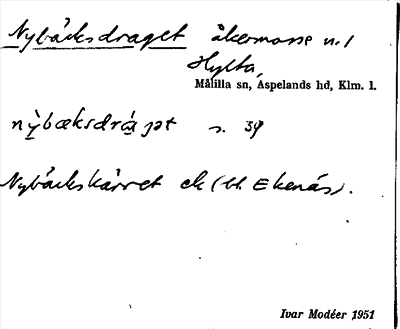 Nybäcksdraget åkermosse n. 1
Hylta,
Målilla sn, Aspelands hd, Klm. l.
s. 39
Nybäckskärret ek (Ekenäs).
Ivar Modéer 1951